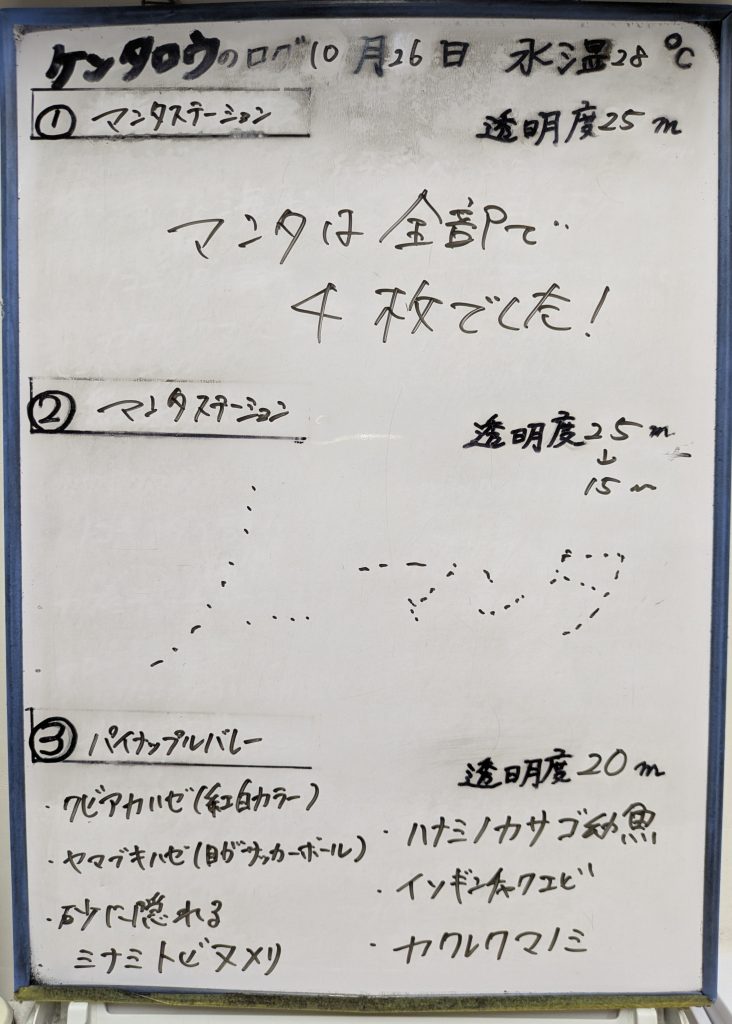 ケンタロウのログ 10月26日 水温28℃
① マンタステーション
透明度25m
マンタは全部で
4枚でした!
② マンタステーション
透明度25m
↓
15m
ノーマンタ
③ パイナップルバレー
透明度20m
・クビアカハゼ(紅白カラー)
・ヤマブキハゼ(目がサッカーボール)
・砂に隠れる
ミナミトビヌメリ
・ハナミノカサゴ幼魚
・イソギンチャクエビ
・カクレクマノミ